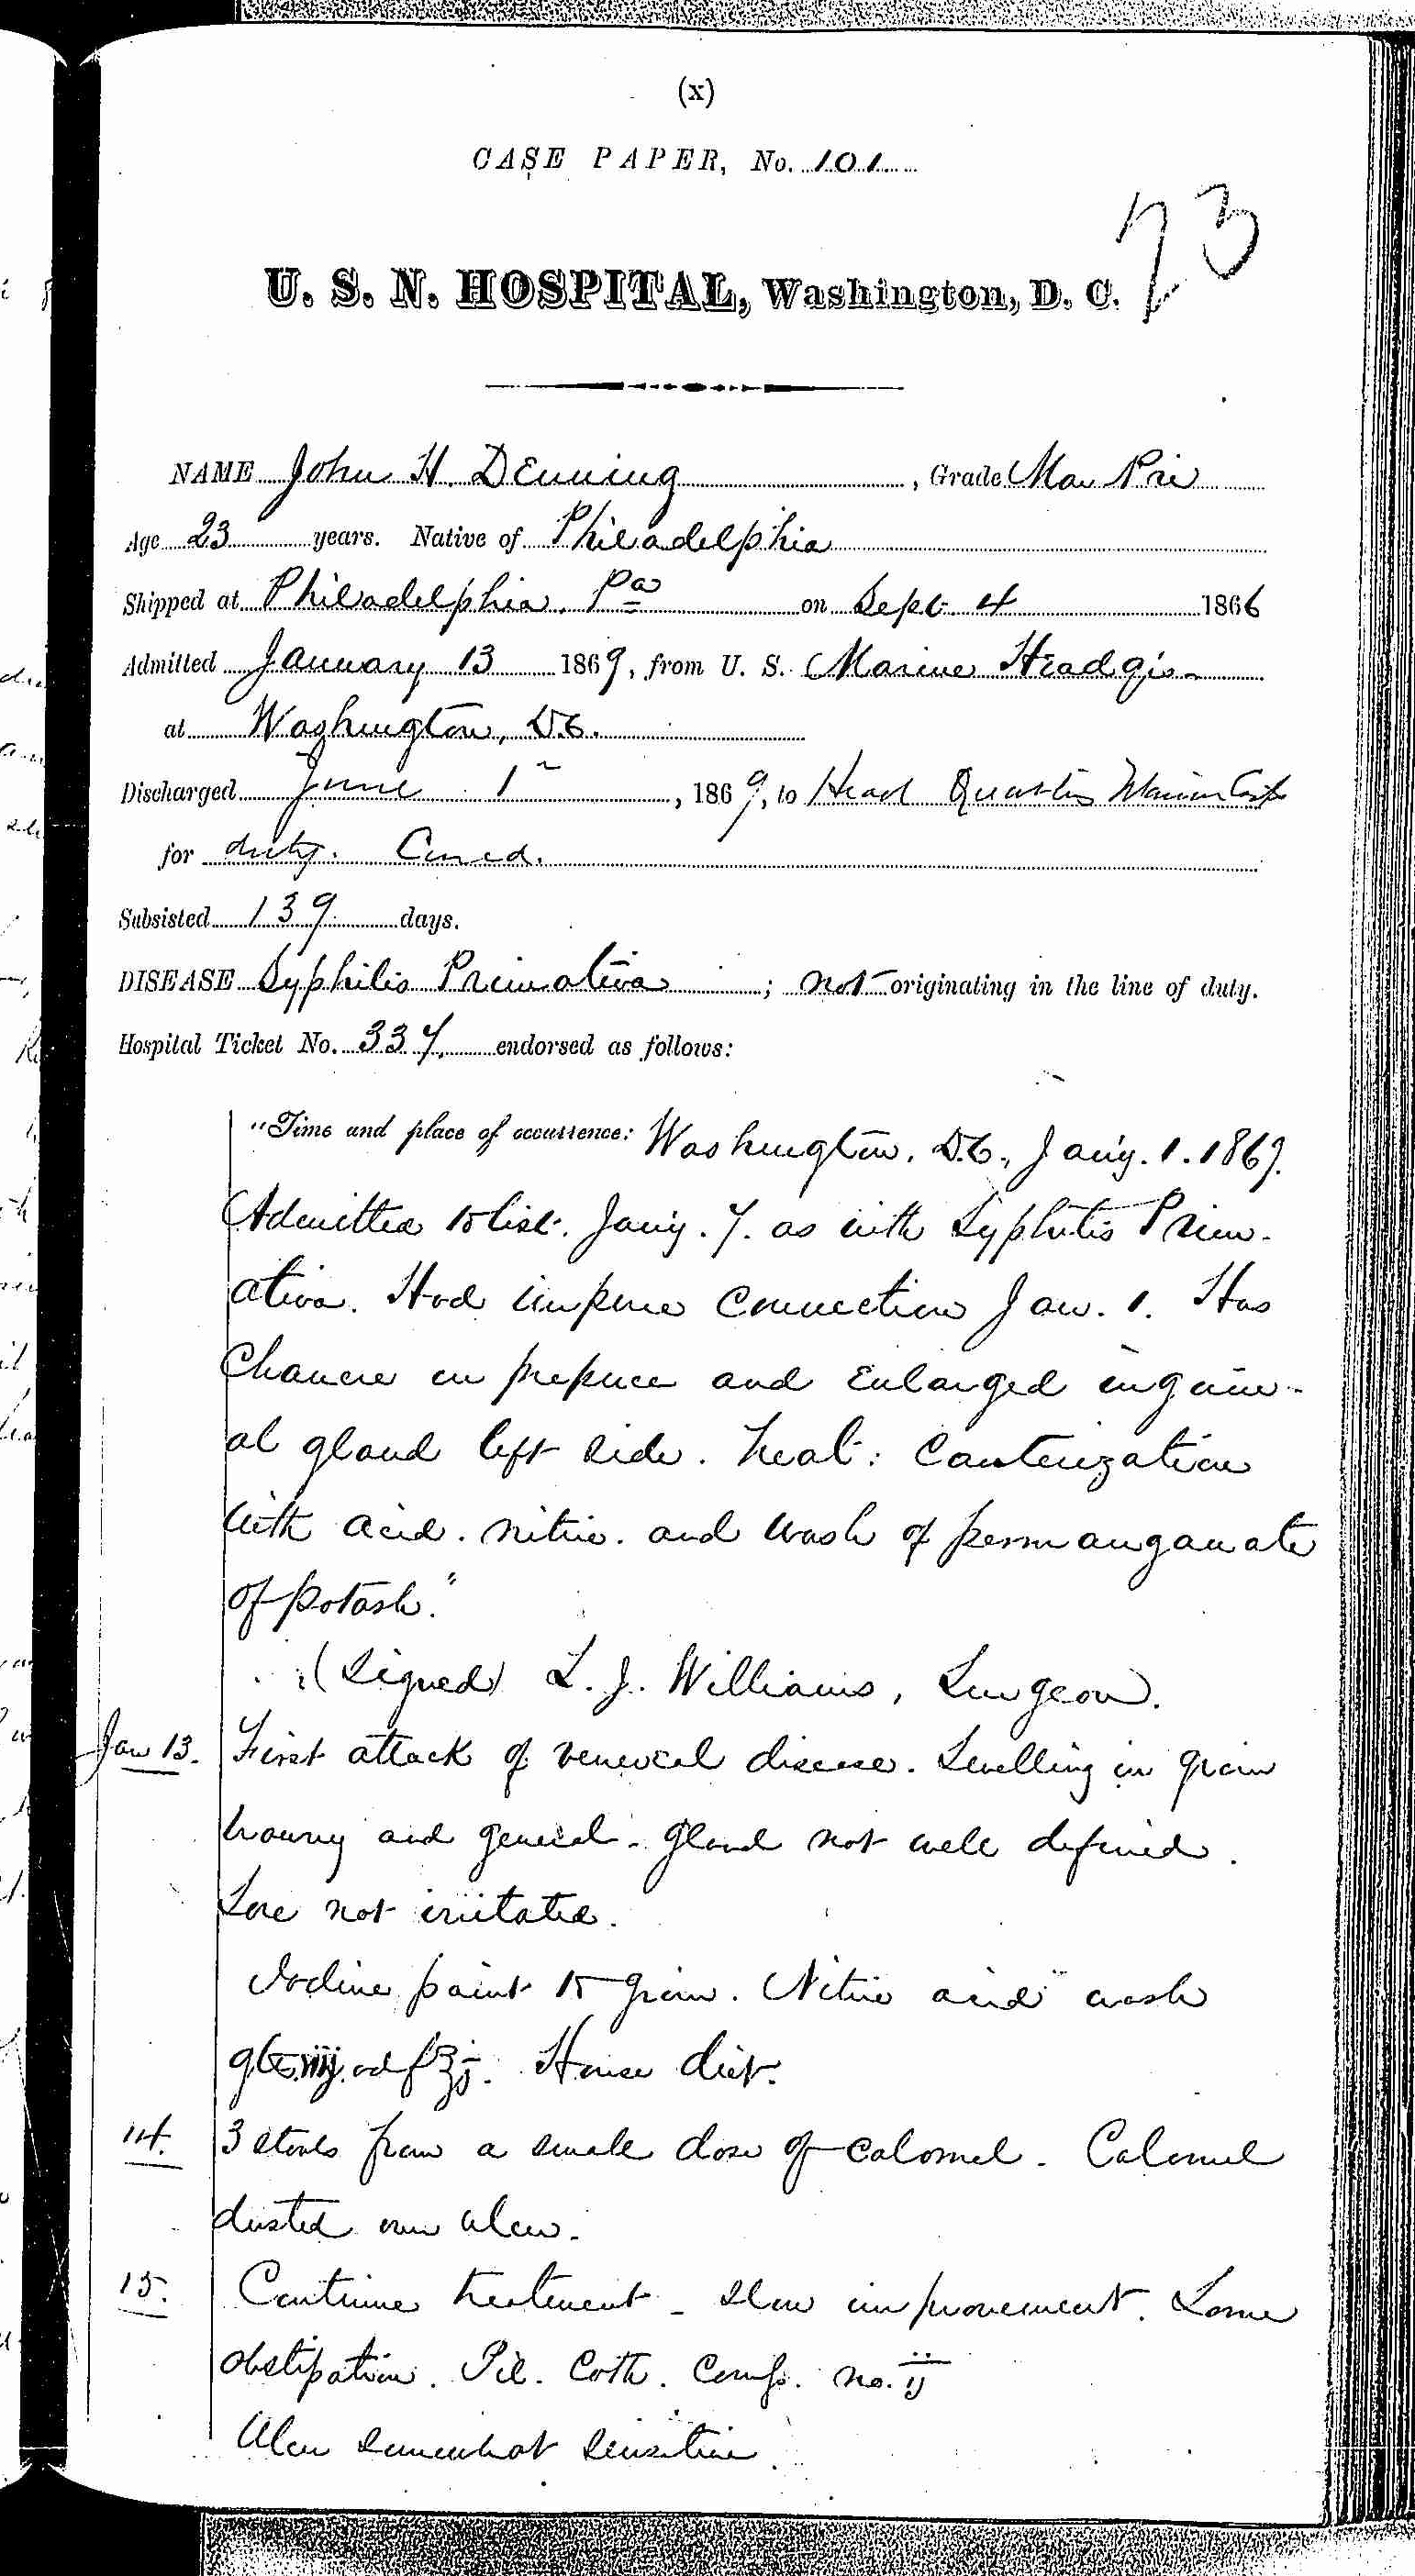 (x)
CASE PAPER, No. 101
73
U. S. N. HOSPITAL, Washington, D. C.
NAME John H. Denning, Grade Mar Pri
Age 23 years. Native of Philadelphia
Shipped at Philadelphia. Pa on Sept. 4 1866
Admitted January 13 1869, from U. S. Marine Headqrs
at Washington, D.C.
Discharged June 1, 1869, to Head Quarters Marine Corps
for duty. Cured.
Subsisted 139 days.
DISEASE Syphilis Primativa; not originating in the line of duty.
Hospital Ticket No. 337, endorsed as follows:
"Time and place of occurrence: Washington, D.C., Jan'y. 1. 1869.
Admitted to list. Jan'y. 7. as with Syphilis Prim-
ativa. Had impure connection Jan. 1. Has
Chancre on prepuce and enlarged inguin-
al gland left side. Treat: Cauterization
with acid. nitric. and wash of permanganate
of potash."
(Signed) L. J. Williams, Surgeon.
Jan 13. First attack of venereal disease. Swelling in groin
brawny and general. Gland not well defined.
Sore not irritated.
Iodine paint to groin. Nitric acid wash
gtt. iij. ad f℥j. House diet.
14. 3 stools from a small dose of calomel. Calomel
dusted over ulcer.
15. Continue treatment - slow improvement. Some
obstipation. Pil. Cath. Comp. no. ij
Ulcer somewhat sensitive.